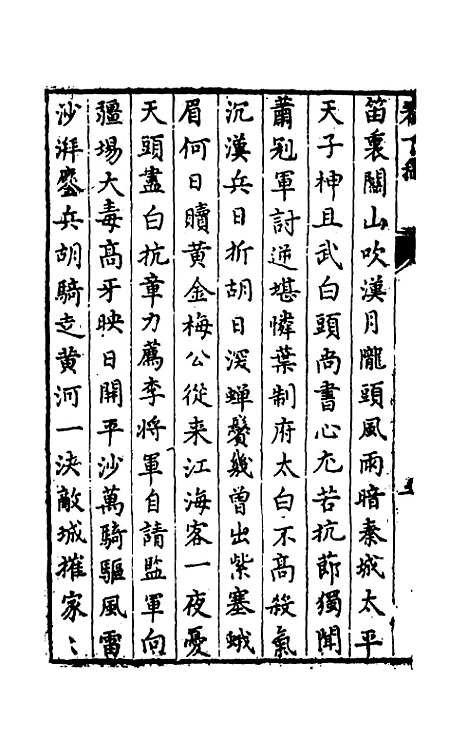 笛裏關山吹漢月隴頭風雨暗秦城太平
天子神且武白頭尚書心尤苦抗節獨聞
蕭剋軍討逆堪憐葉制府太白不高殺氣
沉漢兵日折胡日深蟬鬢幾曾出紫塞蛾
眉何日贖黄金梅公從来江海客一夜憂
天頭盡白抗章力薦李將軍自請監軍向
疆場大毒高牙映日開平沙萬騎驅風雷
沙湃鏖兵胡騎走黄河一決敵城摧家〻